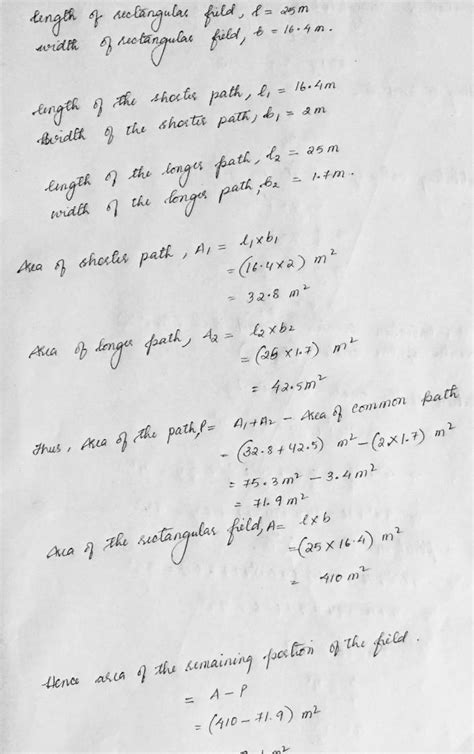 length of rectangular field, l = 25m
width of rectangular field, b = 16.4m.
length of the shorter path, l₁ = 16.4m
Width of the shorter path, b₁ = 2m
length of the longer path, l₂ = 25m
width of the longer path, b₂ = 1.7m.
Area of shorter path, A₁ = l₁×b₁
= (16.4×2) m²
= 32.8 m²
Area of longer path, A₂ = l₂×b₂
= (25×1.7) m²
= 42.5m²
Thus, Area of the path, P = A₁+A₂ - Area of common path
= (32.8+42.5) m² - (2×1.7) m²
= 75.3m² - 3.4m²
= 71.9m²
Area of the rectangular field, A = l×b
= (25×16.4) m²
= 410 m²
Hence area of the remaining portion of the field.
= A-P
= (410-71.9) m²